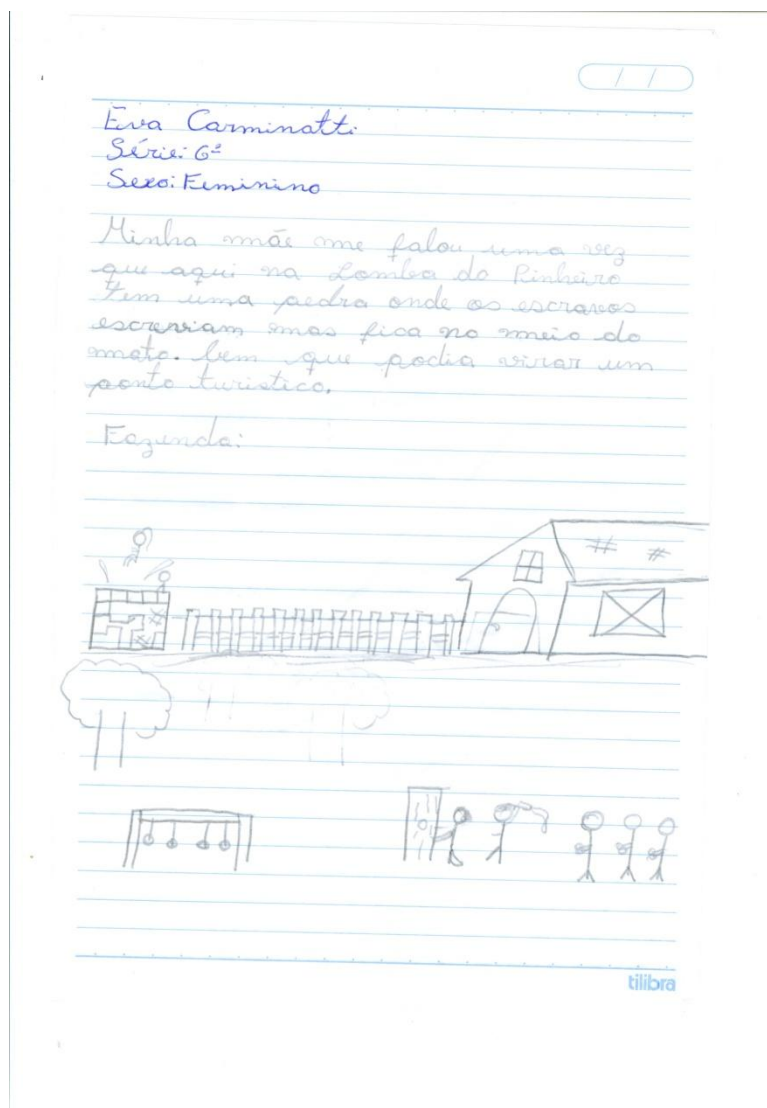 / /
Eva Carminatti
Série: 6ª
Sexo: Feminino
Minha mãe me falou uma vez
que aqui na Lomba do Pinheiro
tem uma pedra onde os escravos
escreviam mas fica no meio do
mato. bem que podia virar um
ponto turistico.
Fazenda:
tilibra